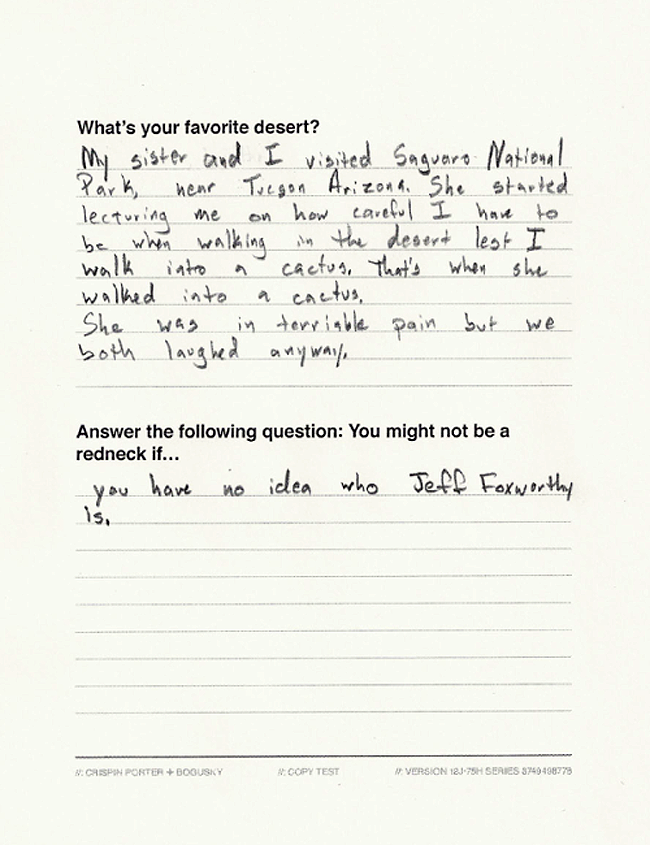 What's your favorite desert?
My sister and I visited Saguaro National
Park, near Tucson Arizona. She started
lecturing me on how careful I have to
be when walking in the desert lest I
walk into a cactus. That's when she
walked into a cactus.
She was in terriable pain but we
both laughed anyway.
Answer the following question: You might not be a
redneck if...
you have no idea who Jeff Foxworthy
is.
//: CRISPIN PORTER + BOGUSKY //: COPY TEST //: VERSION 12J-75H SERIES 3749498778